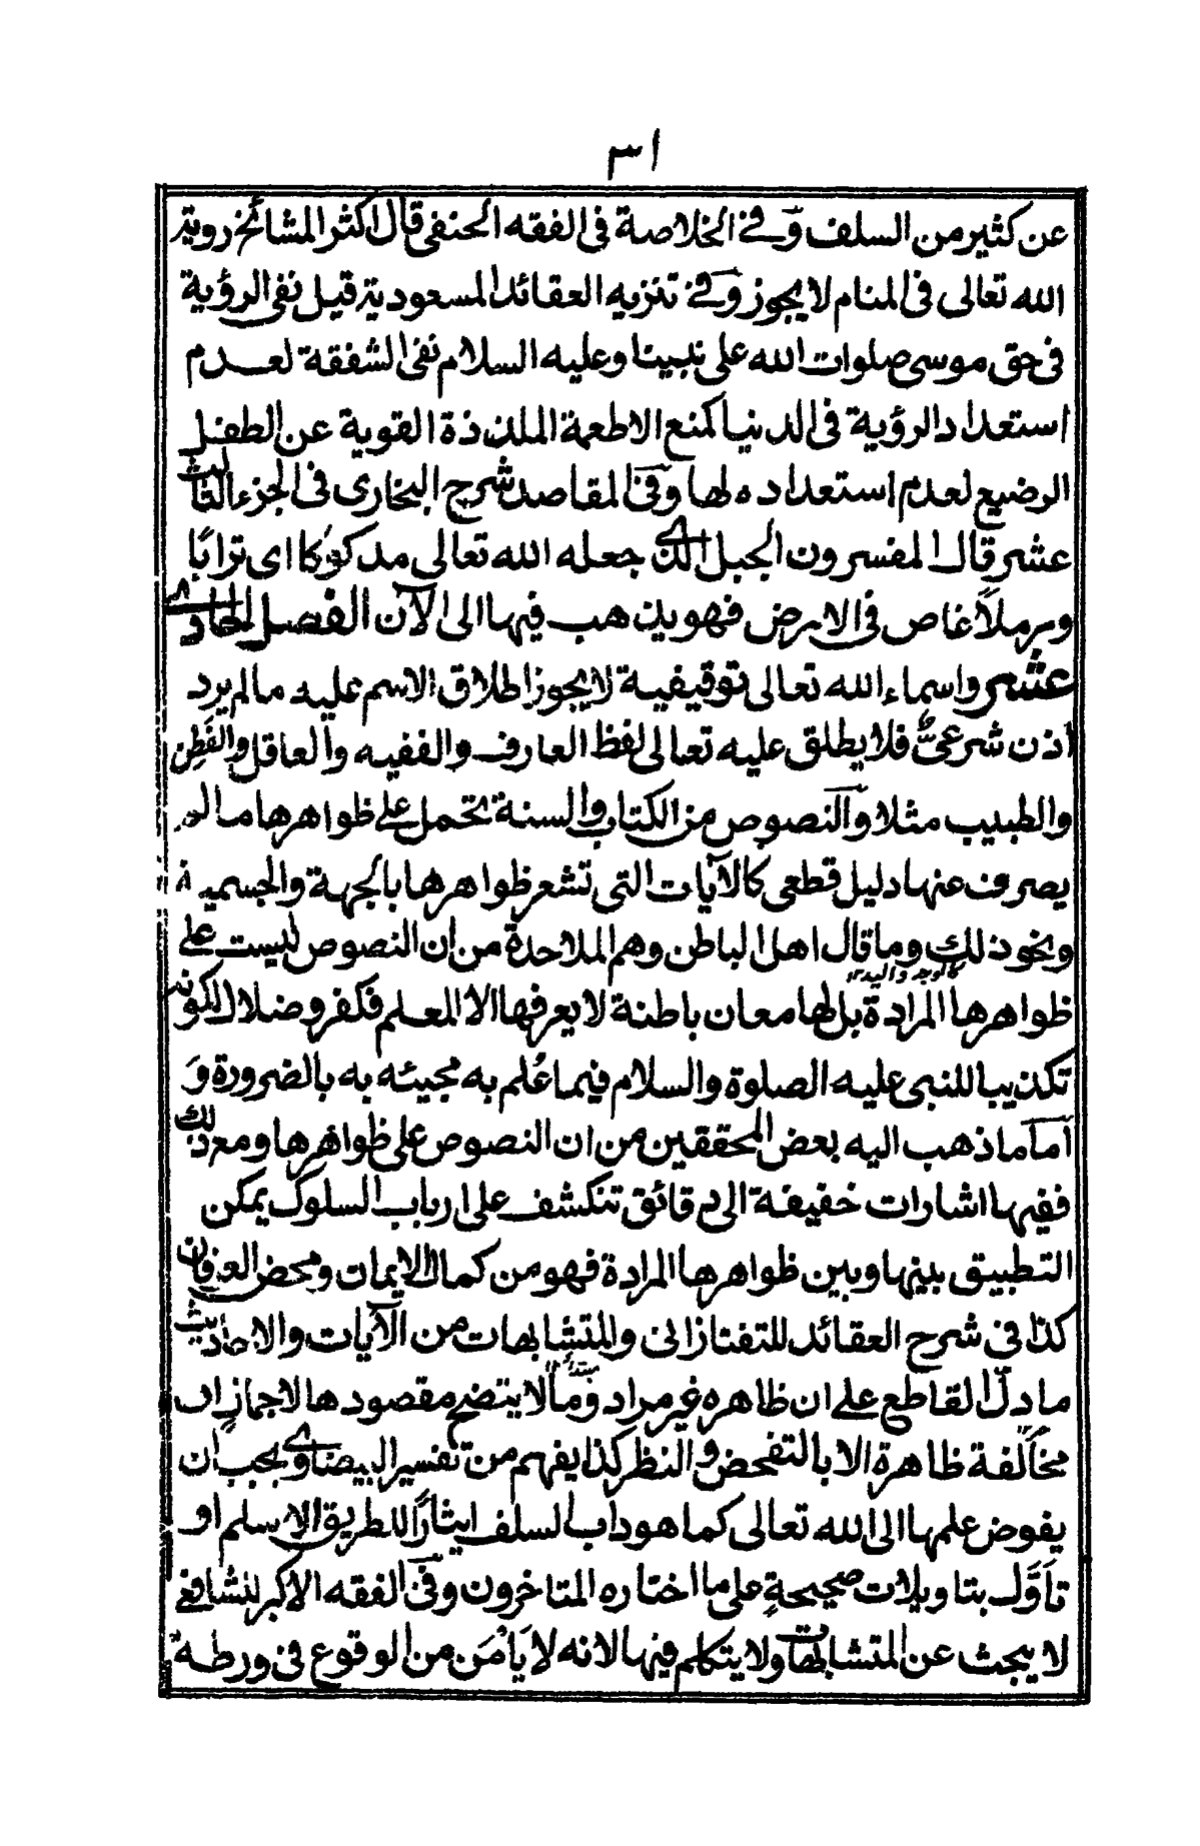 ٣١
عن كثير من السلف وفى الخلاصة فى الفقه الحنفى قال اكثر المشائخ روية
الله تعالى فى المنام لا يجوز وفى تنزيه العقائد المسعودية قيل نفى الرؤية
فى حق موسى صلوات الله على نبينا وعليه السلام نفى الشفقة لعدم
استعداد الرؤية فى الدنيا كمنع الاطعمة الملذذة القوية عن الطفل
الرضيع لعدم استعداده لها وفى المقاصد شرح البخارى فى الجزء الثالث
عشر قال المفسرون الجبل الذى جعله الله تعالى مدكوكا اى ترابًا
ورملاً غاص فى الارض فهو يذهب فيها الى الآن الفصل الحادى
عشر واسماء الله تعالى توقيفية لا يجوز اطلاق الاسم عليه مالم يرد
اذن شرعىٌّ فلا يطلق عليه تعالى لفظ العارف والفقيه والعاقل والفَطِن
والطبيب مثلا والنصوص من الكتاب والسنة تحمل على ظواهرها مالم
يصرف عنها دليل قطعى كالآيات التى تشعر ظواهرها بالجهة والجسمية
ونحو ذلك وما قال اهل الباطن وهم الملاحدة من ان النصوص ليست على
كالوجه واليد
ظواهرها المرادة بل لها معان باطنة لا يعرفها الا المعلم فكفر وضلال لكونه
تكذيبا للنبى عليه الصلوة والسلام فيما عُلم به مجيئه به بالضرورة وَ
اما ما ذهب اليه بعض المحققين من ان النصوص على ظواهرها ومع ذلك
ففيها اشارات خفيفة الى دقائق تنكشف على ارباب السلوك يمكن
التطبيق بينها وبين ظواهرها المرادة فهو من كمال الايمان ومحض العرفان
كذا فى شرح العقائد للتفتازانى والمتشابهات من الآيات والاحاديث
ما دلّ القاطع على ان ظاهره غير مراد وما لا يتضح مقصودها لاجمازٍ او
مخالفة ظاهرة الا بالتفحض والنظر كذا يفهم من تفسير البيضاوى يجب ان
يفوض علمها الى الله تعالى كما هو داب السلف ايثارًا للطريق الاسلم او
تأوَّل بتاويلات صحيحةٍ على ما اختاره المتاخرون وفى الفقه الاكبر للشافعى
لا يبحث عن المتشابهات ولا يتكلم فيها لانه لا يَامْن من الوقوع فى ورطة